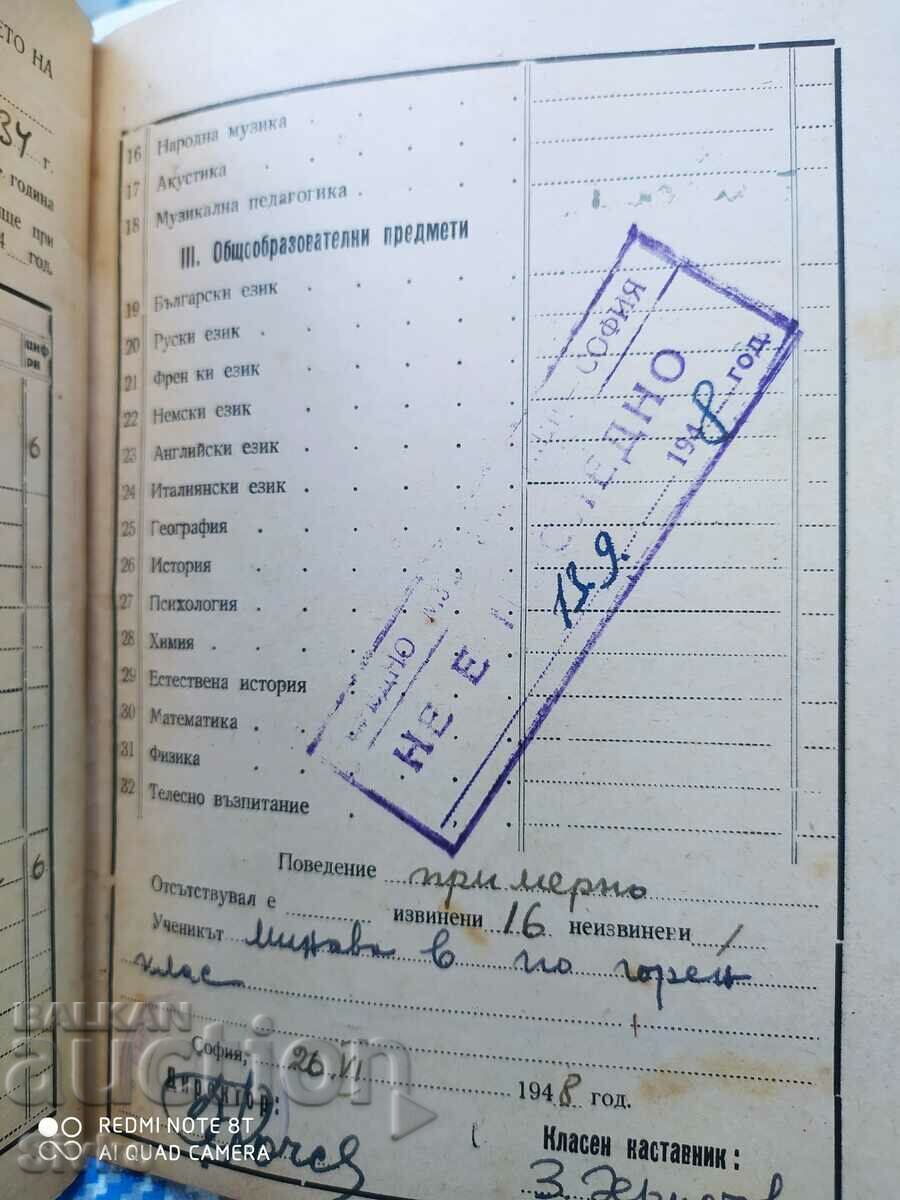 ЕТО НА
34 г.
година
ще при
4 год.
циф
ри
6
6
16 Народна музика
17 Акустика
18 Музикална педагогика
III. Общообразователни предмети
19 Български език
20 Руски език
21 Френ ки език
22 Немски език
23 Английски език
24 Италиянски език
25 География
26 История
27 Психология
28 Химия
29 Естествена история
30 Математика
31 Физика
32 Телесно възпитание
СОФИЯ
НЕ Е
СЛЕДНО
13.9. 1948 год.
Поведение примерно
Отсътствувал е извинени 16 неизвинени 1
Ученикът минава в по горен
клас
София, 26 VI 1948 год.
Директор:
Класен каставник:
BALKAN
auction
REDMI NOTE 8T
AI QUAD CAMERA